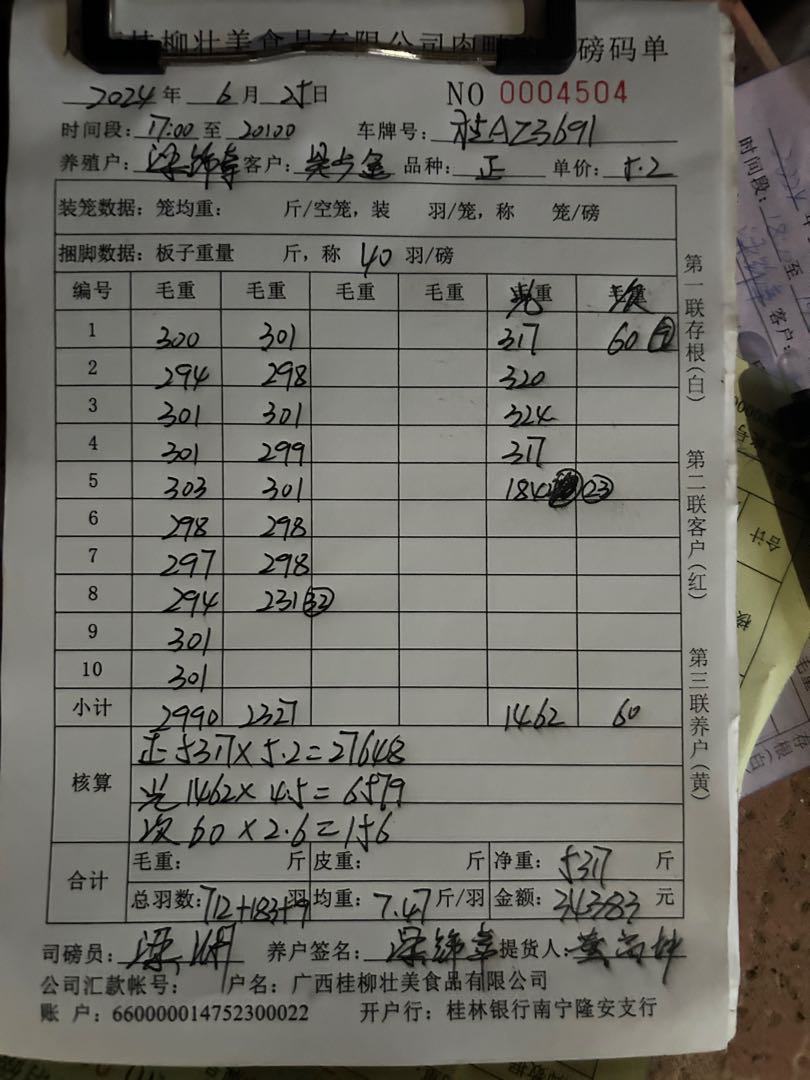 桂柳壮美食品有限公司肉鸭 磅码单
2024年 6月25日 NO 0004504
时间段: 17:00 至 20:00 车牌号: 桂AZ3691
养殖户: 梁锦章 客户: 品种: 正 单价: 5.2
装笼数据: 笼均重: 斤/空笼, 装 羽/笼, 称 笼/磅
捆脚数据: 板子重量 斤, 称 40 羽/磅
编号 毛重 毛重 毛重 毛重 光重 次
1 300 301 317 60 ⑨
2 294 298 320
3 301 301 324
4 301 299 317
5 303 301 184 (23)
6 298 298
7 297 298
8 294 231 (32)
9 301
10 301
小计 2990 2327 1462 60
核算 正 5317×5.2=27648
光 1462×4.5=6579
次 60×2.6=156
合计 毛重: 斤 皮重: 斤 净重: 5317 斤
总羽数: 712+183+9 羽 均重: 7.47 斤/羽 金额: 34383 元
司磅员: 梁 养户签名: 梁锦章 提货人: 黄
公司汇款帐号: 户名: 广西桂柳壮美食品有限公司
账 户: 660000014752300022 开户行: 桂林银行南宁隆安支行
第一联存根(白) 第二联客户(红) 第三联养户(黄)
时间段: 18 至
客户:
合计
核